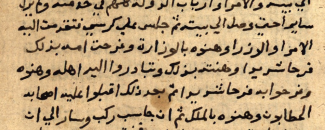 الى بيته والامرا وارباب الدولة كلهم في خدمته ولم يزل
ساير حتى وصل الى بيته ثم جلس على كرسيه فتقدمت اليه
الامرا والوزرا وهنوه بالوزارة وفرحت امه بذلك
فرحا شديدا وهنته بذلك وتبادروا اليه اهله وهنوه
وفرحوا به فرحا شديدا ثم بعد ذلك اقبلوا عليه اصحابه
الحطابون وهنوه بالملك ثم ان حاسب ركب وسار الى ان